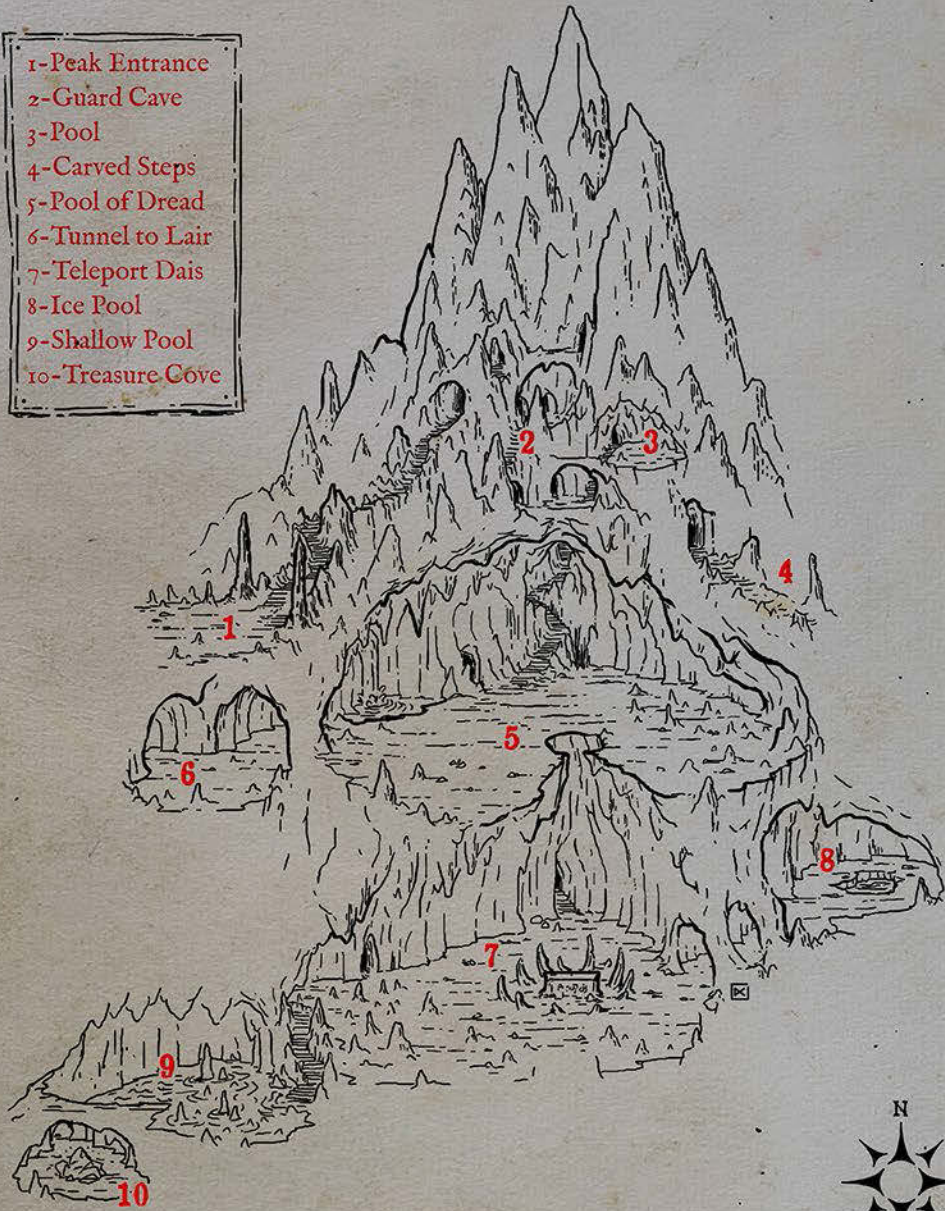 1-Peak Entrance
2-Guard Cave
3-Pool
4-Carved Steps
5-Pool of Dread
6-Tunnel to Lair
7-Teleport Dais
8-Ice Pool
9-Shallow Pool
10-Treasure Cove
2
3
4
1
5
6
8
7
9
N
10